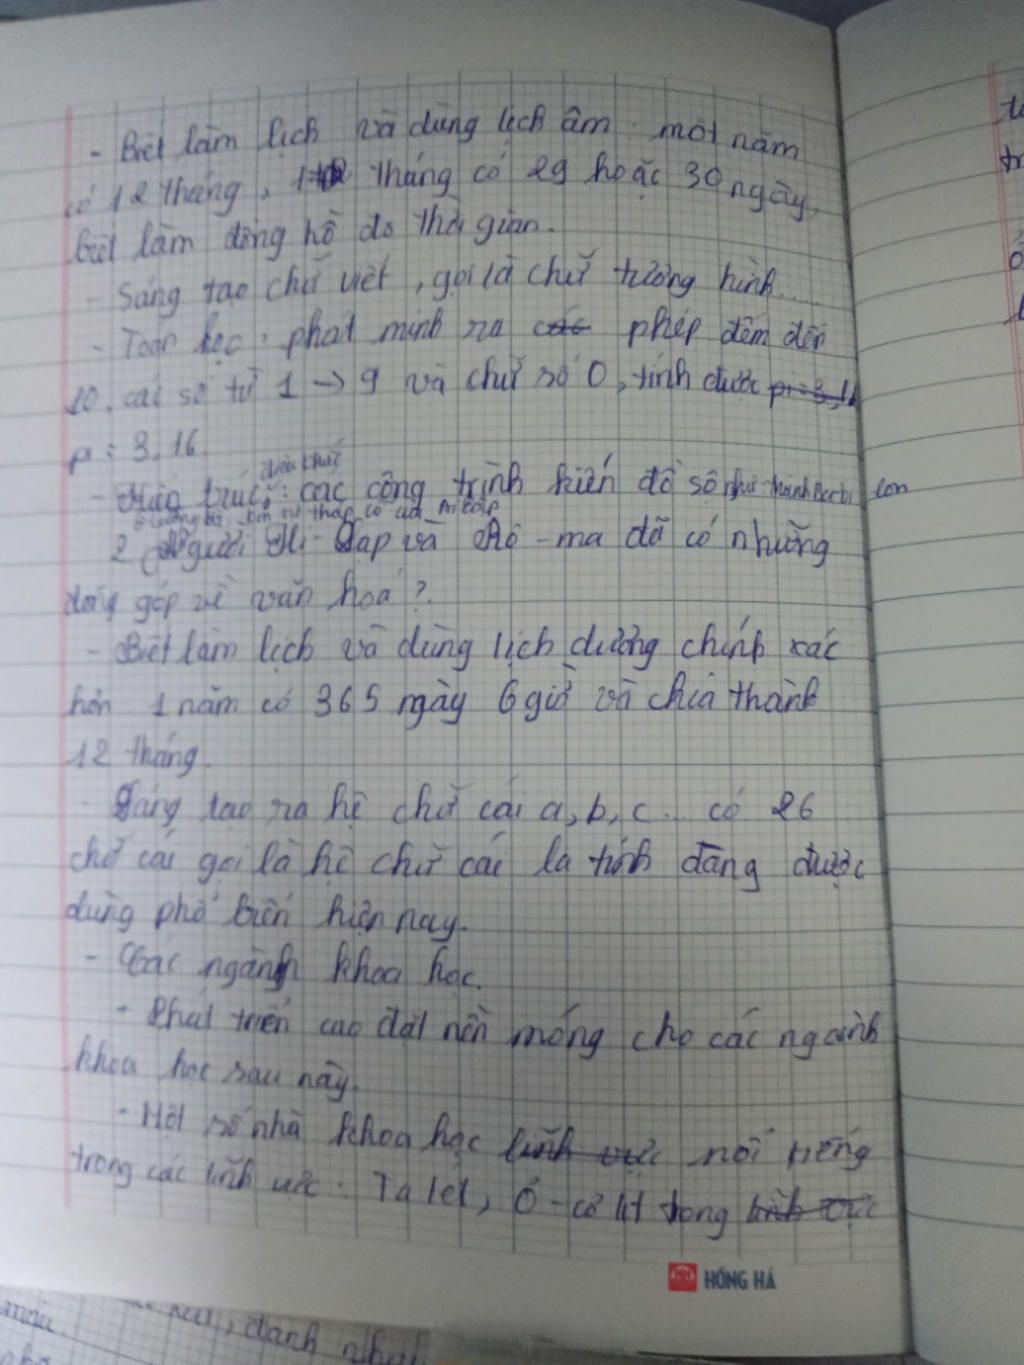 - Biết làm lịch và dùng lịch âm. một năm
có 12 tháng, 1 tháng có 29 hoặc 30 ngày,
biết làm đồng hồ đo thời gian.
- Sáng tạo chữ viết, gọi là chữ tượng hình....
- Toán học: phát minh ra các phép đếm đến
10, các số từ 1 → 9 và chữ số 0, tính được pi = 3,16
pi = 3,16
điêu khắc
- Kiến trúc: các công trình kiến đồ sộ như: thành lon
kim tự tháp cổ của Ai Cập
2 Người Hi-Lạp và Rô-ma đã có những
đóng góp về văn hoá?
- Biết làm lịch và dùng lịch dương chính xác
hơn 1 năm có 365 ngày 6 giờ và chia thành
12 tháng.
- Sáng tạo ra hệ chữ cái a, b, c... có 26
chữ cái gọi là hệ chữ cái la tinh đang được
dùng phổ biến hiện nay.
- Các ngành khoa học.
+ Phát triển cao đặt nền móng cho các ngành
khoa học sau này.
- Một số nhà khoa học lĩnh vực nổi tiếng
trong các lĩnh vực: Ta lét, Ơ-cơ lít trong lĩnh vực
HỒNG HÀ
danh nhân